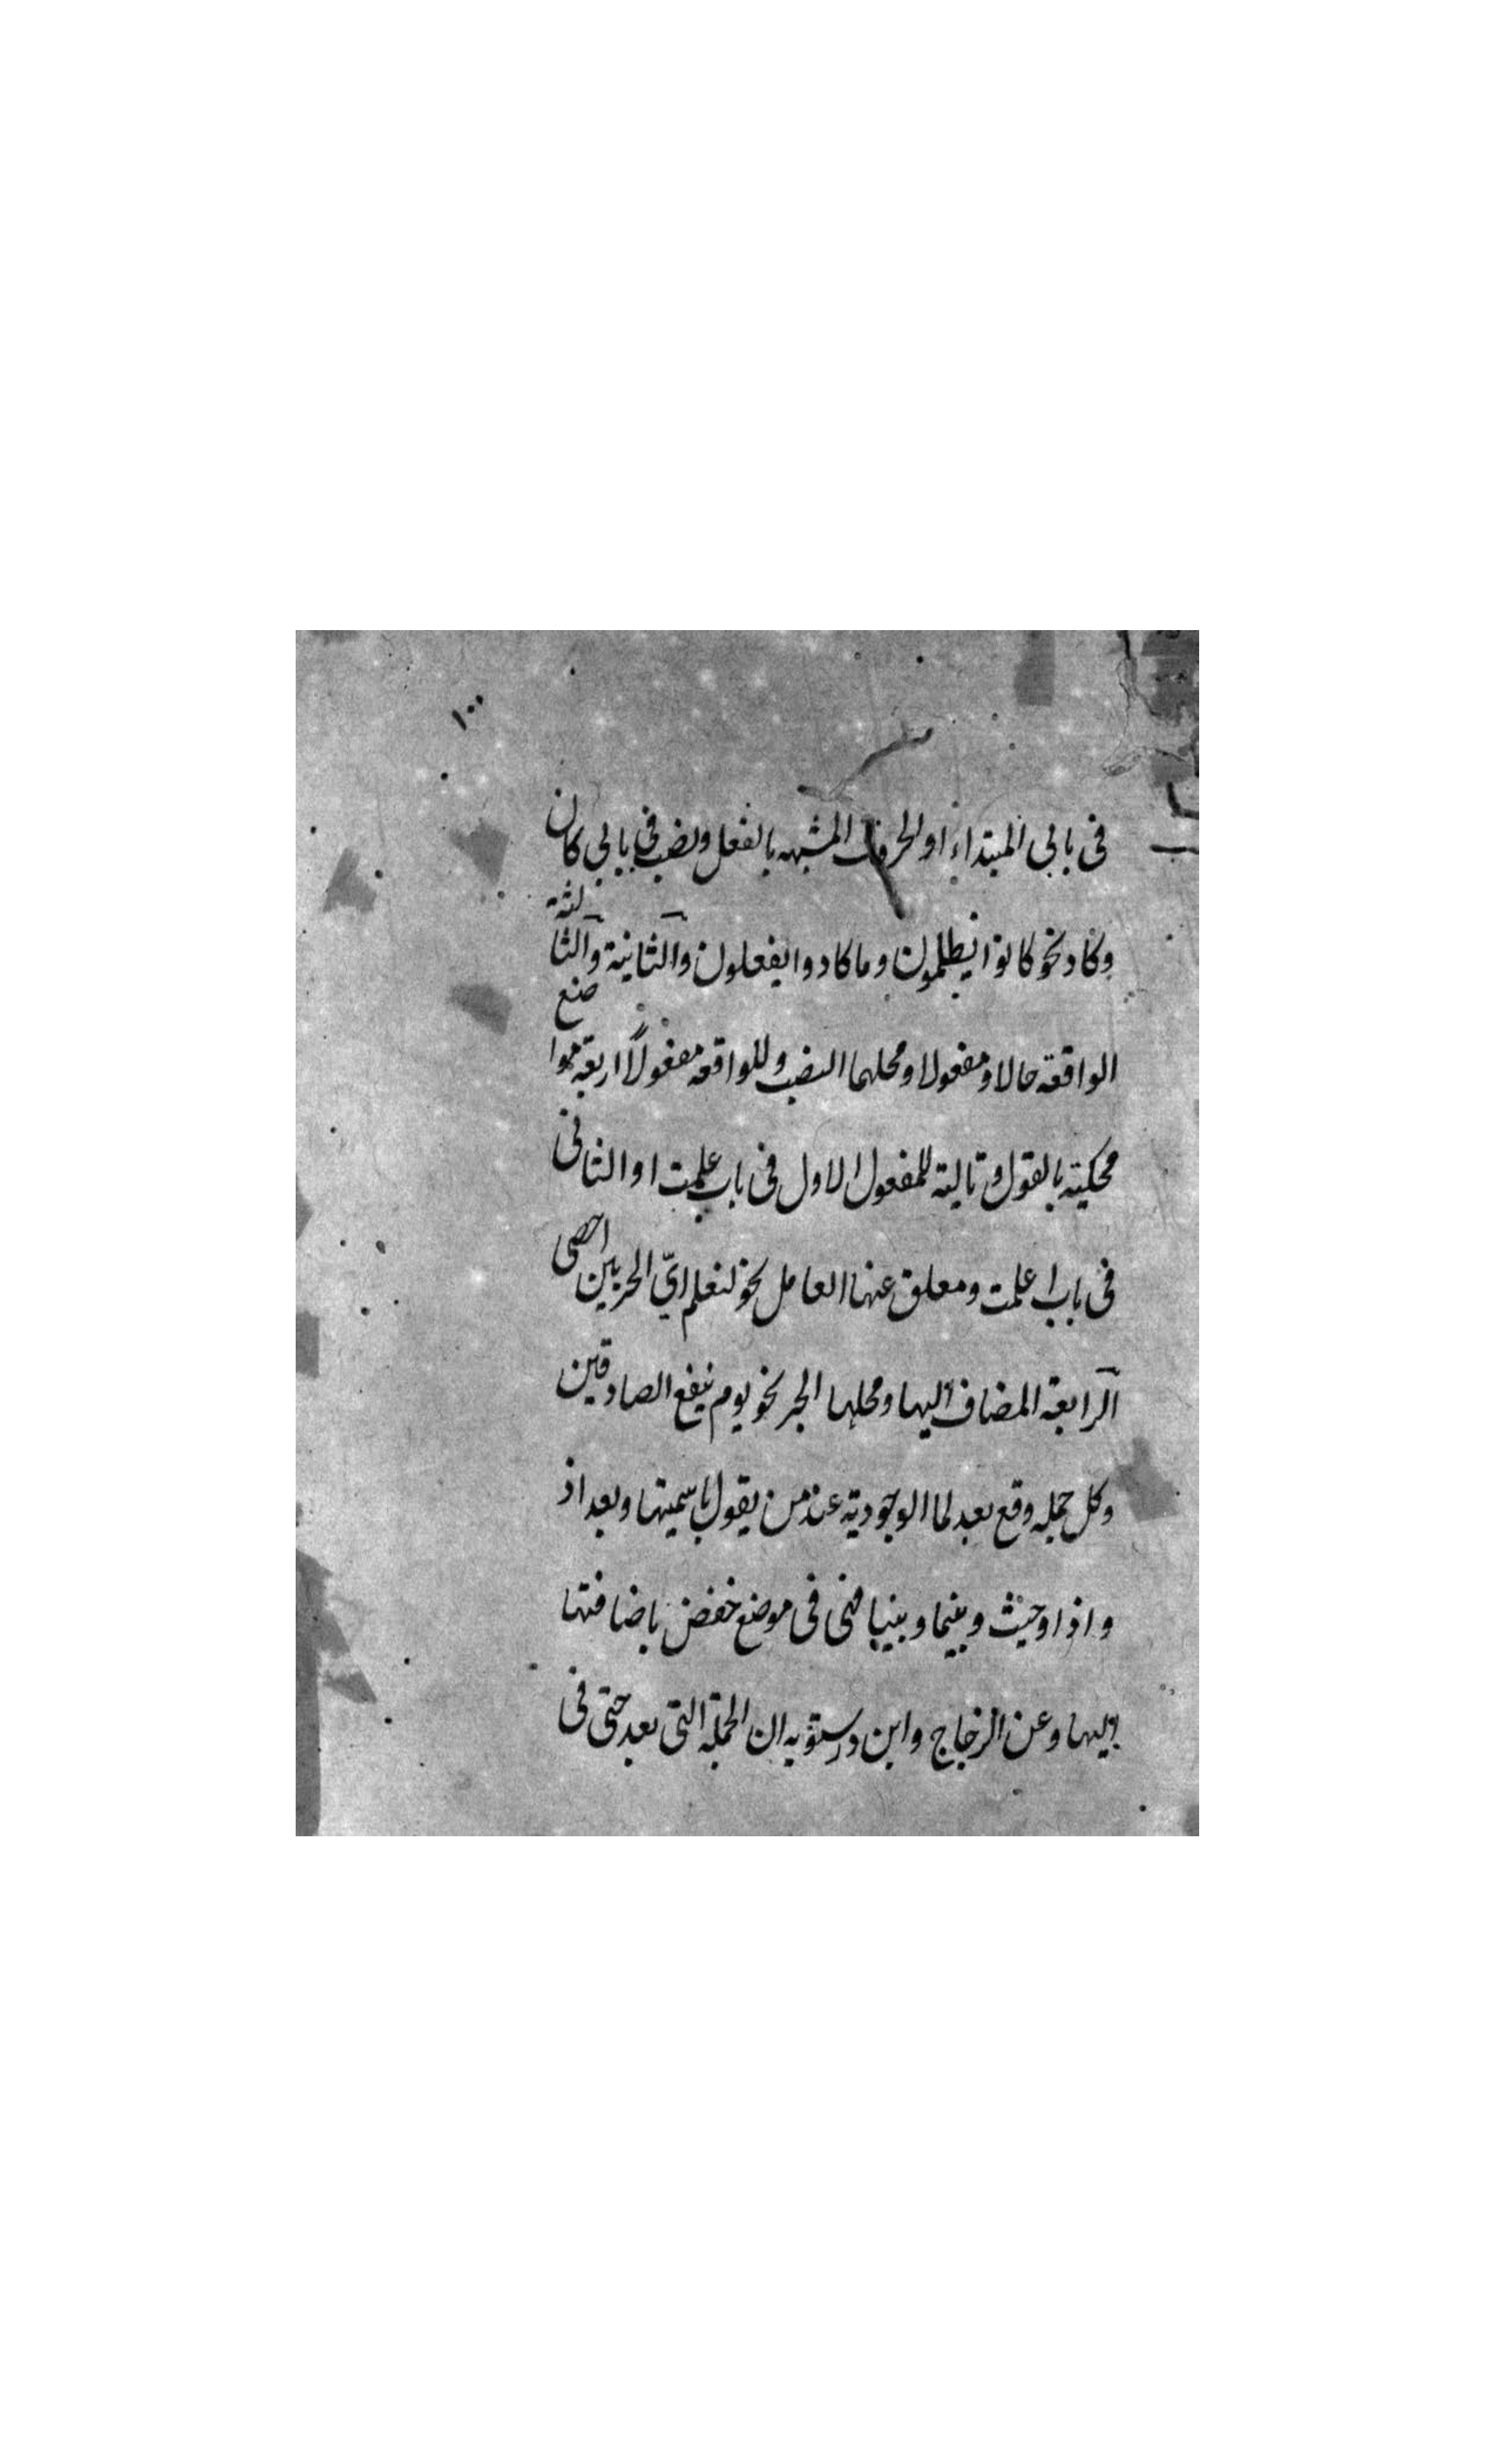 ١٠٠
فى بابى المبتداء او الحروف المشبهه بالفعل ونصب فى بابى كان
وكاد نحو كانوا يظلمون وما كادوا يفعلون والثانية والثالثه
الواقعة حالا ومفعولا ومحلهما النصب وللواقعه مفعولاً اربعة مواضع
محكية بالقول وتالية للمفعول الاول فى باب علمت او الثانى
فى باب اعلمت ومعلق عنها العامل نحو لنعلم اىّ الحزبين احصى
الرابعة المضاف اليها ومحلها الجر نحو يوم ينفع الصادقين
وكل جمله وقع بعد لما الوجودية عند من يقول باسميتها وبعد اذ
واذا وحيث وبينما وبينا فهى فى موضع خفض باضافتها
اليها وعن الزجاج وابن درستويه ان الجملة التى بعد حتى فى